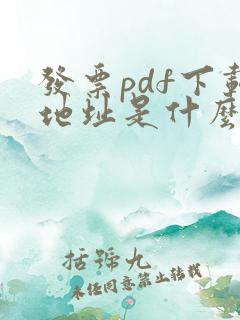 發票pdf下載
地址是什麼
括號九
未经同意禁止转载